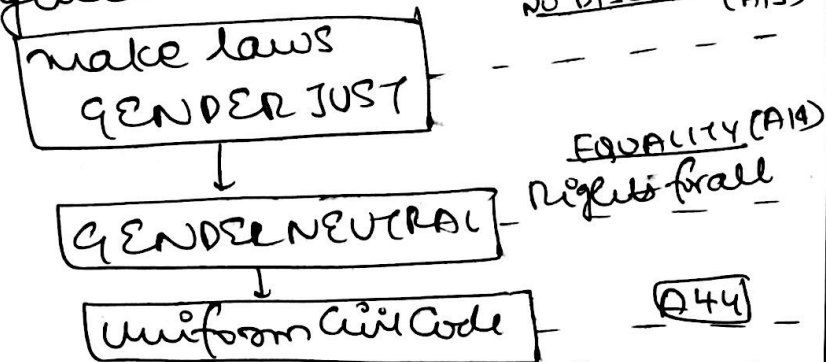 NO
make laws
GENDER JUST
EQUALITY (A14)
Rights for all
GENDER NEUTRAL
Uniform Civil Code
A44